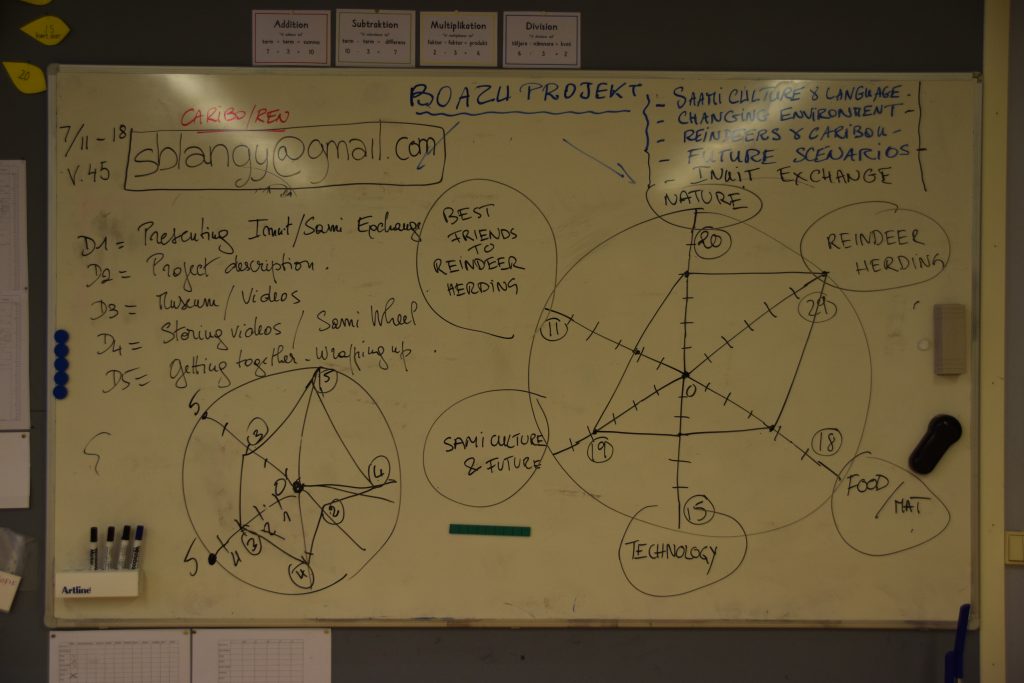 15
20
Addition
term + term = summa
7 + 3 = 10
Subtraktion
term - term = differens
10 - 3 = 7
Multiplikation
faktor · faktor = produkt
Division
täljare ÷ nämnare = kvot
CARIBO/REN
BOAZU PROJEKT
- SAAMI CULTURE & LANGUAGE -
- CHANGING ENVIRONMENT -
- REINDEERS & CARIBOU -
- FUTURE SCENARIOS -
- INUIT EXCHANGE
7/11 - 18
V. 45
sblangy@gmail.com
D1 = Presenting Inuit/Sami Exchange
D2 = Project description.
D3 = Museum / Videos
D4 = Storing videos / Sami Wheel
D5 = Getting together - Wrapping up.
BEST
FRIENDS
TO
REINDEER
HERDING
NATURE
20
REINDEER
HERDING
29
11
0
SAMI CULTURE
& FUTURE
19
18
FOOD
/ MAT
15
TECHNOLOGY
5
5
3
0
4
1
2
2
3
4
5
4
Artline